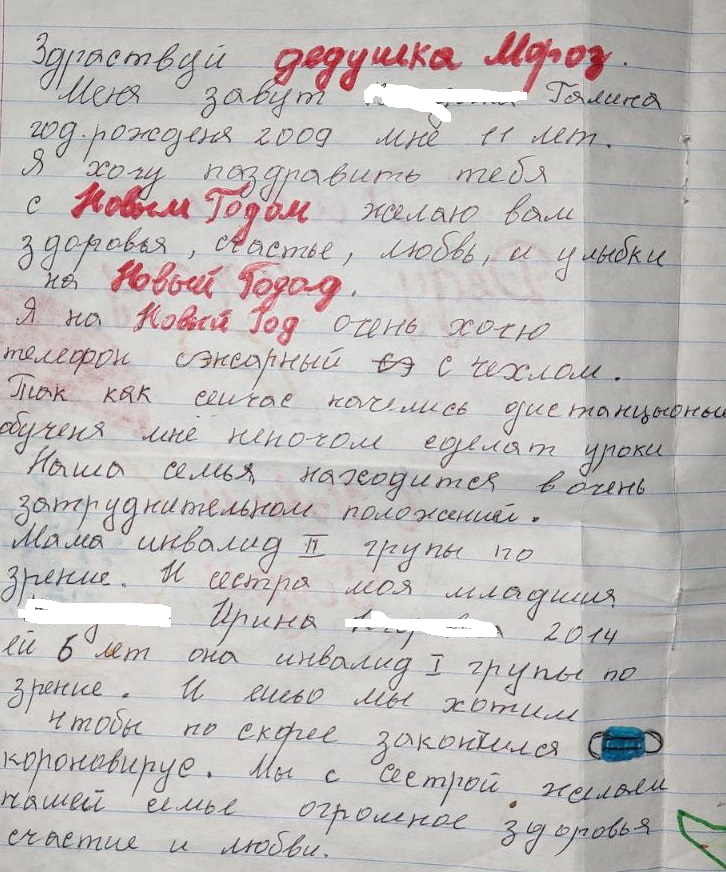 Здраствуй дедушка Мороз.
Меня завут Галина
год.рожденя 2009 мне 11 лет.
Я хочу паздравить тебя
с Новым Годом желаю вам
здоровья, счастье, любвь, и улыбки
на Новый Годад.
Я на Новый Год очень хочю
телефон сэнсарный с чехлом.
Так как сейчас начелись дистанцыоные
обученя мне непочом сделат уроки
Наша семья находится в очень
затруднительном положений.
Мама инвалид II групы по
зрение. И сестра моя младшия
Ирина 2014
ей 6 лет она инвалид I групы по
зрение. И ешьо мы хотим
чтобы по скорее закончился
короновирус. Мы с Сестрой желаем
нашей семье огромное здоровья
счастие и любви.